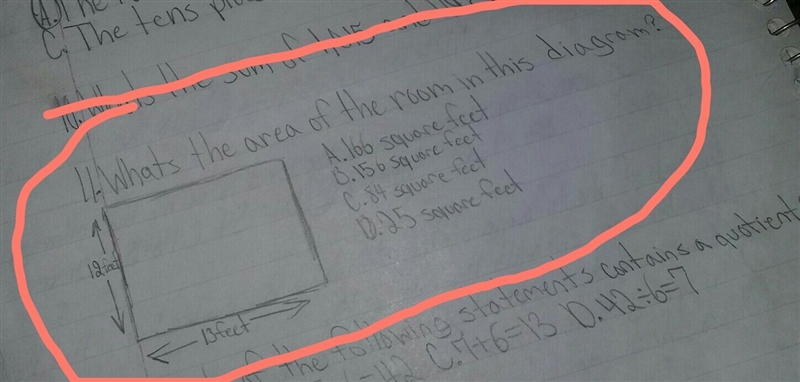 A. The
C. The tens
10. Whats the sum of
11. Whats the area of the room in this diagram?
A. 166 square feet
B. 156 square feet
C. 84 square feet
D. 25 square feet
12 feet
13 feet
of the following statements contains a quotient
=42 C. 7+6=13 D. 42÷6=7